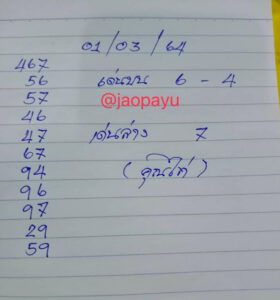 01/03/64
467
56 เด่นบน 6 - 4
57 @jaopayu
46
47 เด่นล่าง 7
67
94 (คุณไก่)
96
97
29
59